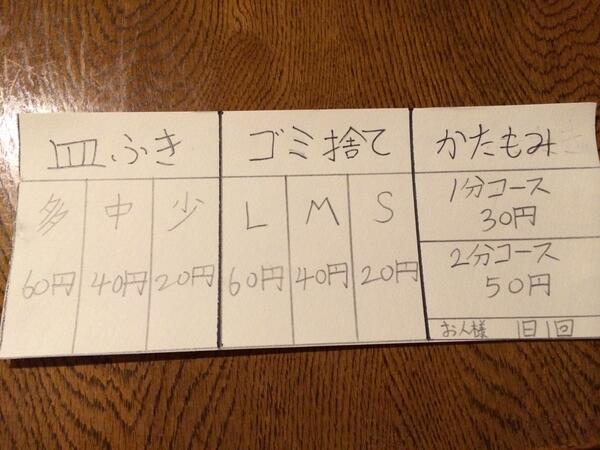 皿ふき
多 中 少
60円 40円 20円
ゴミ捨て
L M S
60円 40円 20円
かたもみ
1分コース
30円
2分コース
50円
お人様 1日1回